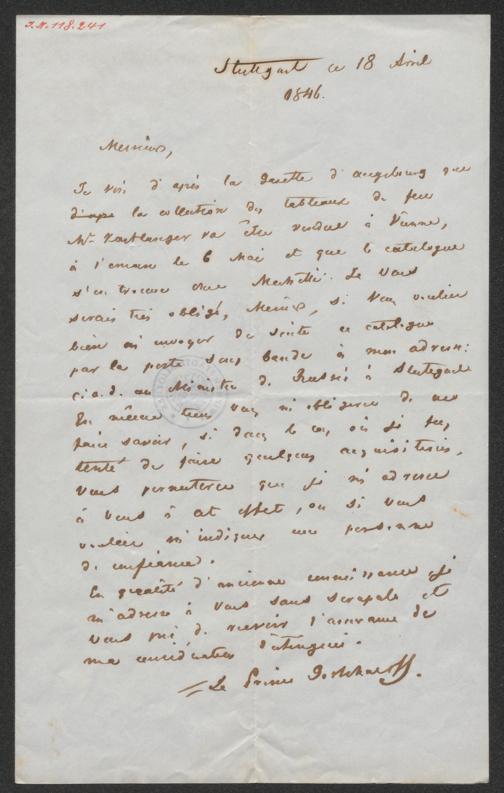 I.N. 118.241
Stuttgart ce 18 Avril
1846.
Messieurs,
Je vois d'après la Gazette d'Augsbourg que
la collection des tableaux de feu
Mr. va être vendue à Vienne,
à l'encan le 6 Mai et que le catalogue
s'en trouve chez Je vous
serais très obligé, Messieurs, si vous vouliez
bien m'envoyer de suite ce catalogue
par la poste sous bande à mon adresse:
c.a.d. au Ministre de Russie à Stuttgart
En même tems vous m'obligerez de me
faire savoir, si dans le cas où je fus
tenté de faire quelques acquisitions,
vous permettrez que je m'adresse
à vous à cet effet, ou si vous
voulez m'indiquer une personne
de confiance.
En qualité d'ancienne connaissance je
m'adresse à vous sans scrupule et
vous prie de recevoir l'assurance de
ma considération distinguée.
Le Prince Gortchacoff.